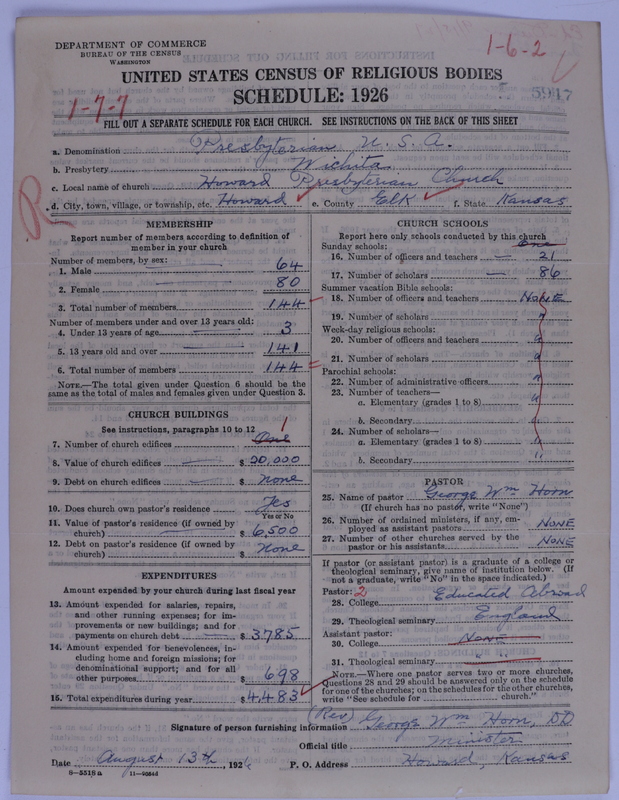 DEPARTMENT OF COMMERCE
BUREAU OF THE CENSUS
WASHINGTON
1-6-2
UNITED STATES CENSUS OF RELIGIOUS BODIES
SCHEDULE: 1926
5947
1-7-7
FILL OUT A SEPARATE SCHEDULE FOR EACH CHURCH. SEE INSTRUCTIONS ON THE BACK OF THIS SHEET
a. Denomination Presbyterian U.S.A.
b. Presbytery Wichita
c. Local name of church Howard Presbyterian Church
d. City, town, village, or township, etc. Howard e. County Elk f. State Kansas
R
MEMBERSHIP
Report number of members according to definition of
member in your church
Number of members, by sex:
1. Male 64
2. Female 80
3. Total number of members 144
Number of members under and over 13 years old:
4. Under 13 years of age 3
5. 13 years old and over 141
6. Total number of members 144
NOTE.—The total given under Question 6 should be the
same as the total of males and females given under Question 3.
CHURCH BUILDINGS
See instructions, paragraphs 10 to 12
1
7. Number of church edifices One
8. Value of church edifices $ 20,000
9. Debt on church edifices $ none
10. Does church own pastor's residence Yes
Yes or No
11. Value of pastor's residence (if owned by
church) $ 6,500
12. Debt on pastor's residence (if owned by
church) $ none
EXPENDITURES
Amount expended by your church during last fiscal year
13. Amount expended for salaries, repairs,
and other running expenses; for im-
provements or new buildings; and for
payments on church debt $ 3785
14. Amount expended for benevolences, in-
cluding home and foreign missions; for
denominational support; and for all
other purposes $ 698
15. Total expenditures during year $ 4483
CHURCH SCHOOLS
Report here only schools conducted by this church
Sunday schools: One
16. Number of officers and teachers 21
17. Number of scholars 86
Summer vacation Bible schools:
18. Number of officers and teachers None
19. Number of scholars "
Week-day religious schools:
20. Number of officers and teachers "
21. Number of scholars "
Parochial schools:
22. Number of administrative officers "
23. Number of teachers—
a. Elementary (grades 1 to 8) "
b. Secondary "
24. Number of scholars—
a. Elementary (grades 1 to 8) "
b. Secondary "
PASTOR
25. Name of pastor George Wm Horn
(If church has no pastor, write "None")
26. Number of ordained ministers, if any, em-
ployed as assistant pastors NONE
27. Number of other churches served by the
pastor or his assistants NONE
If pastor (or assistant pastor) is a graduate of a college or
theological seminary, give name of institution below. (If
not a graduate, write "No" in the space indicated.)
Pastor: 2
28. College Educated Abroad
29. Theological seminary England
Assistant pastor:
30. College NONE
31. Theological seminary " "
NOTE.—Where one pastor serves two or more churches,
Questions 28 and 29 should be answered only on the schedule
for one of the churches; on the schedules for the other churches,
write "See schedule for church."
Signature of person furnishing information (Rev) George Wm Horn, DD
Official title Minister
Date August 13th, 1926 P. O. Address Howard, Kansas
8-5518a 11-9064d